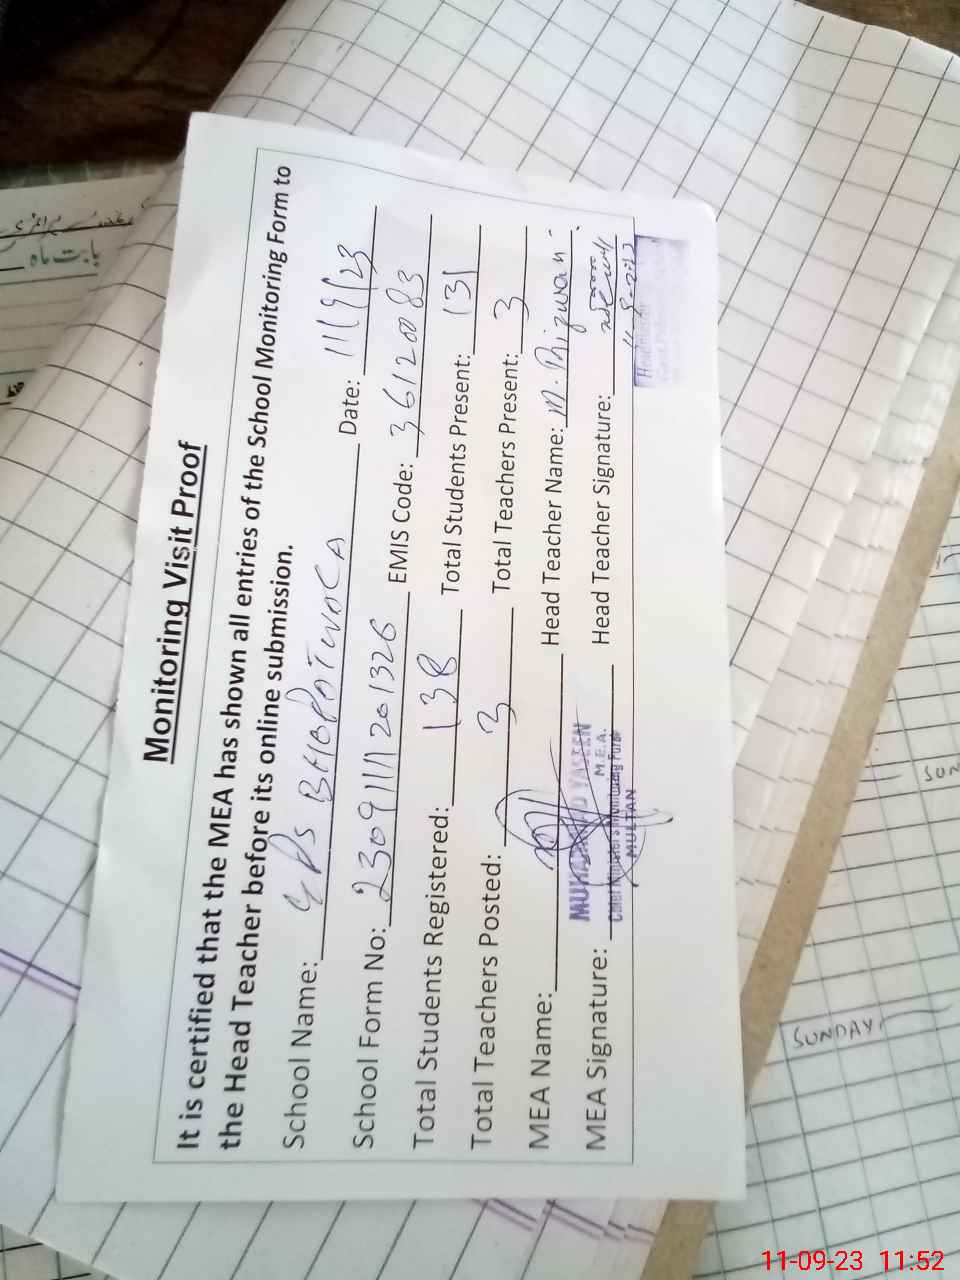 Monitoring Visit Proof
It is certified that the MEA has shown all entries of the School Monitoring Form to
the Head Teacher before its online submission.
School Name: GPS Date: 11/9/23
School Form No: EMIS Code: 36120083
Total Students Registered: 138 Total Students Present: 131
Total Teachers Posted: 3 Total Teachers Present: 3
MEA Name: Head Teacher Name: M. Rizwan
MUHAMMAD YASEEN
M.E.A.
Chief Minister's Monitoring Force
MULTAN
MEA Signature: Head Teacher Signature:
بابت ماہ
SUNDAY
SUN
11-09-23 11:52